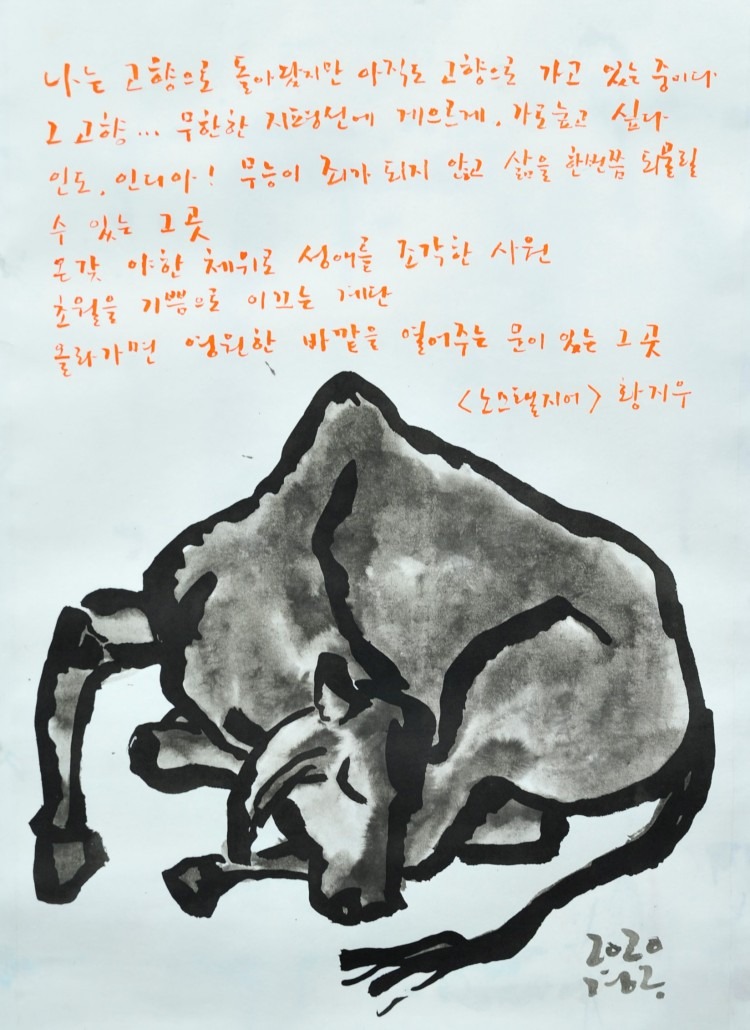 나는 고향으로 돌아왔지만 아직도 고향으로 가고 있는 중이다
그 고향... 무한한 지평선에 게으르게, 가로눕고 싶다
인도, 인디아! 무능이 죄가 되지 않고 삶을 한번쯤 되물릴
수 있는 그곳
온갖 야한 체위로 성애를 조각한 사원
초월을 기쁨으로 이끄는 계단
올라가면 영원한 바깥을 열어주는 문이 있는 그 곳
<노스탤지어> 황지우
2020